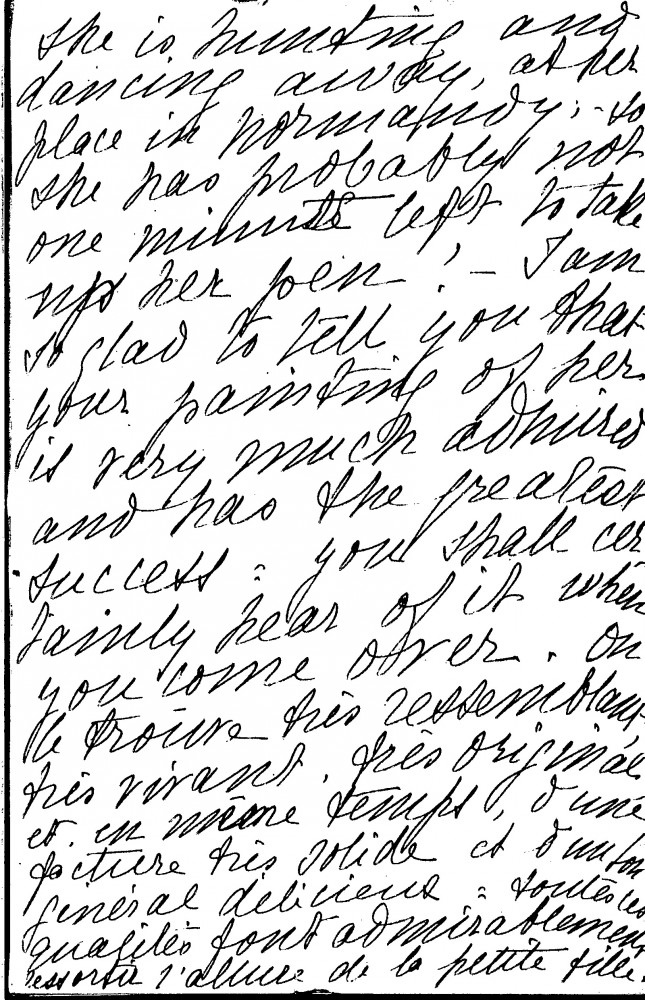 she is hunting and
dancing away, at her
place in normandy; - so
she has probably not
one minute left to take
up her pen! - I am
so glad to tell you that
your painting of her
is very much admired
and has the greatest
success: you shall cer
tainly hear of it when
you come over. On
le trouve très ressemblant,
très vivant, très original
et en même temps, d'une
facture très solide et d'un ton
général délicieux: toutes ces
qualités font admirablement
ressortir l'allure de la petite fille.